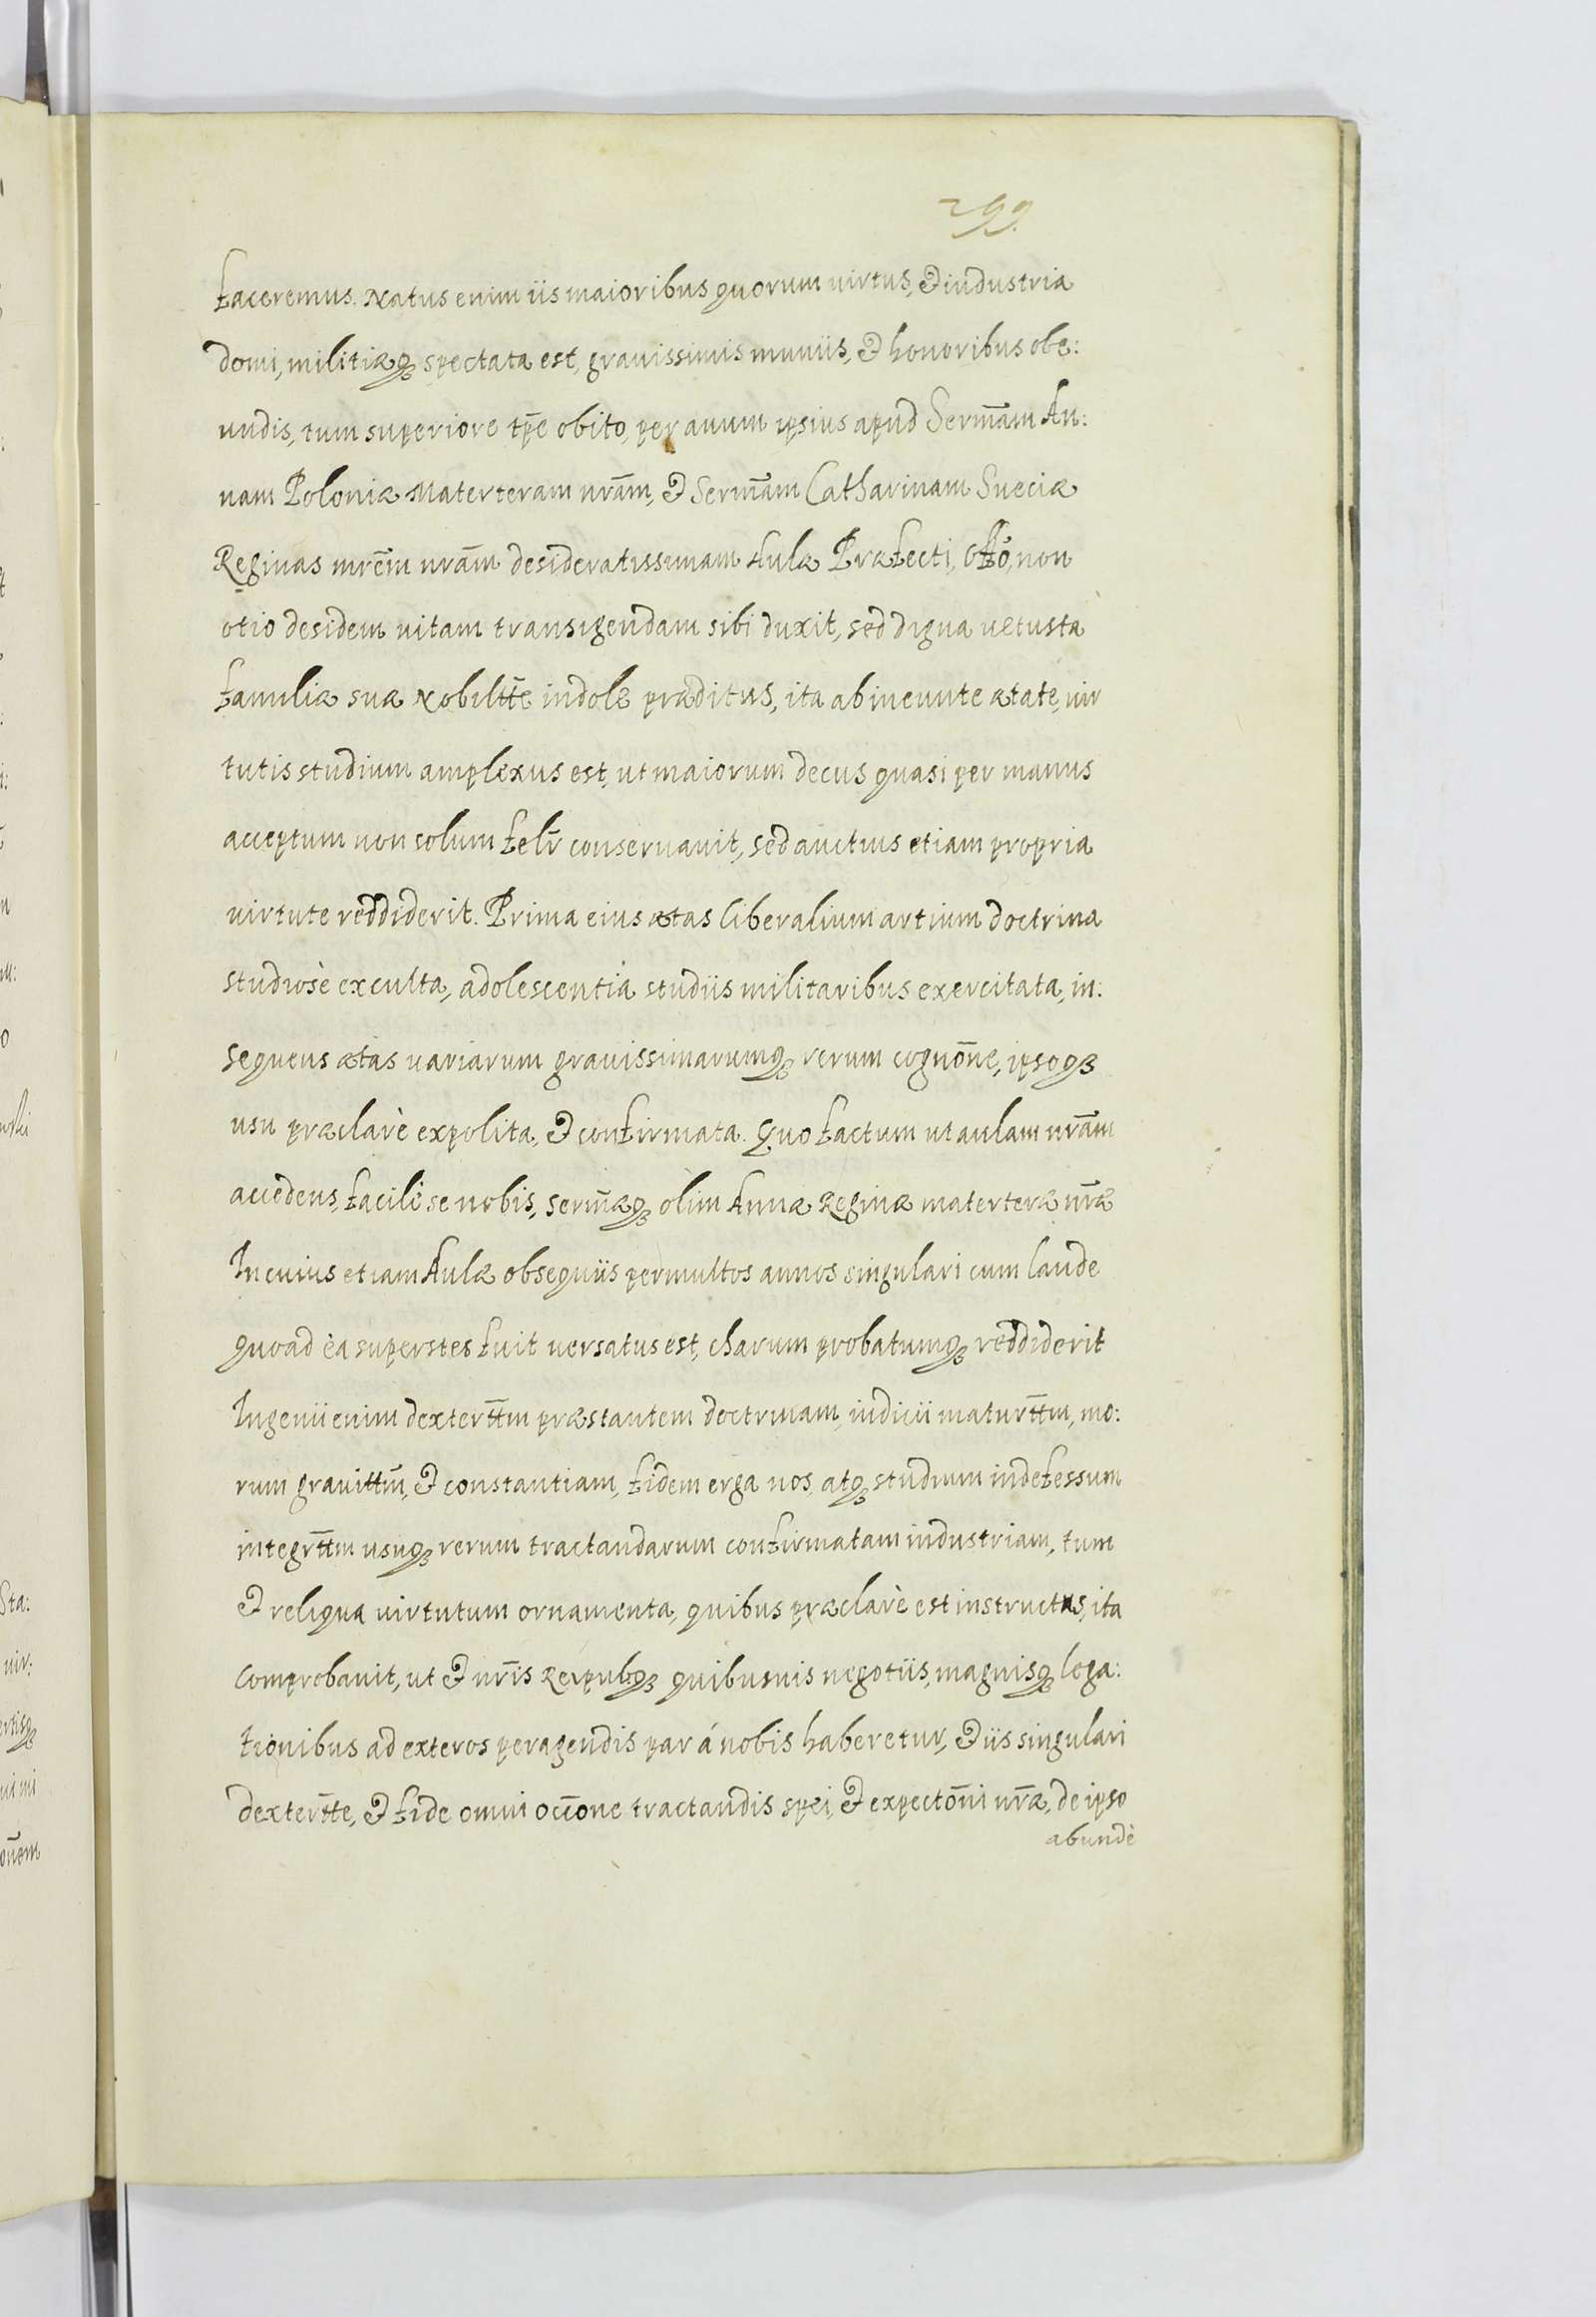 299.
faceremus. Natus enim iis maioribus quorum virtus, & industria
domi, militiæq3 spectata est, grauissimis muniis, & honoribus obe:
undis, tum superiore tp̄e obito, per auum ipsius apud Serm̄am An:
nam Poloniæ Materteram nr̄am, & Serm̄am Catharinam Sueciæ
Reginas mr̄em nr̄am desideratissimam Aulæ Præfecti, offō, non
otio desidem uitam transigendam sibi duxit, sed digna uetusta
familiæ suæ Nobiltt̄e indole præditus, ita ab ineunte ætate, uir
tutis studium amplexus est, ut maiorum decus quasi per manus
acceptum non solum felr̄ conseruauit, sed auctius etiam propria
virtute reddiderit. Prima eius ætas liberalium artium doctrina
studiosè exculta, adolescentia studiis militaribus exercitata, in:
sequens ætas uariarum grauissimarumq3 rerum cognōne, ipsoq3
usu præclarè expolita, & confirmata. Quo factum ut aulam nr̄am
accedens, facilè se nobis, serm̄æq3 olim Annæ Reginæ materteræ nr̄æ
In cuius etiam Aulæ obsequiis permultos annos singulari cum laude
quoad ea superstes fuit uersatus est, charum probatumq3 reddiderit
Ingenii enim dextertt̄m præstantem doctrinam, iudicii maturtt̄m, mo:
rum grauittm̄, & constantiam, fidem erga nos, atq3 studium indefessum
integrtt̄m usuq3 rerum tractandarum confirmatam industriam, tum
& reliqua uirtutum ornamenta, quibus præclarè est instructus, ita
comprobauit, ut & nr̄is Reipubq3 quibusuis negotiis, magnisq3 lega:
tionibus ad exteros peragendis par á nobis haberetur, & iis singulari
dextertt̄e, & fide omni occ̄one tractandis spei, & expectōni nr̄æ, de ipso
abundè